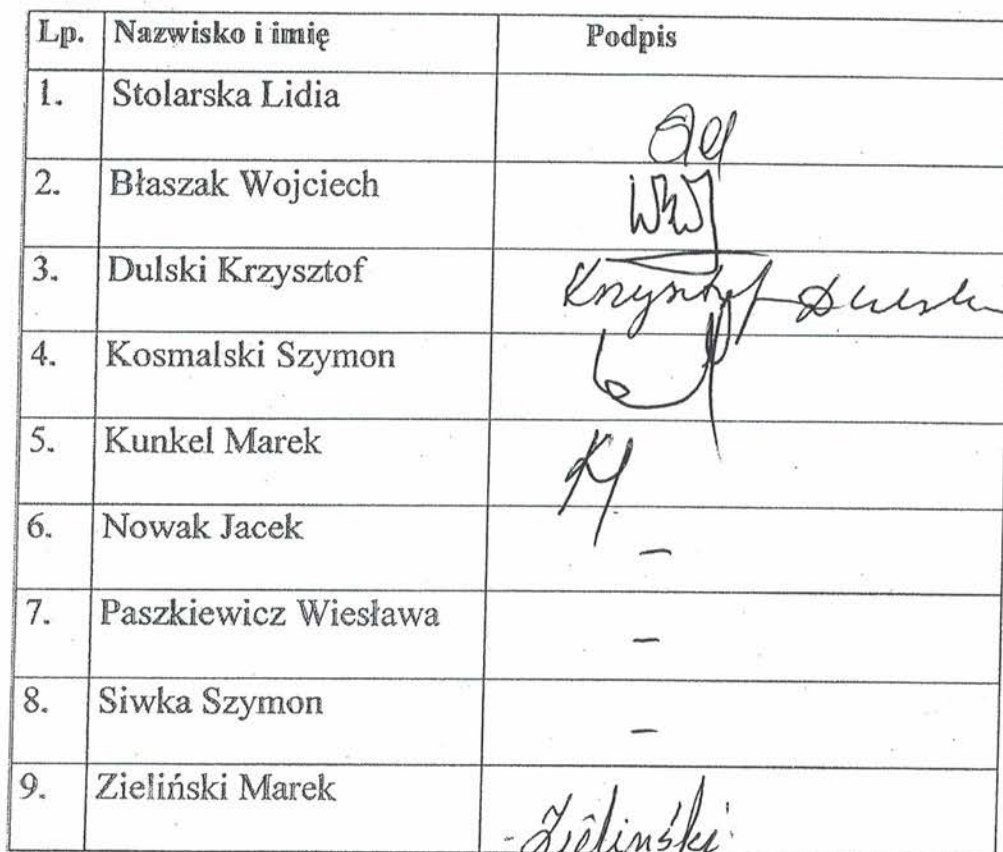 Lp. Nazwisko i imię Podpis
1. Stolarska Lidia
2. Błaszak Wojciech
3. Dulski Krzysztof Krzysztof Dulski
4. Kosmalski Szymon
5. Kunkel Marek
6. Nowak Jacek –
7. Paszkiewicz Wiesława –
8. Siwka Szymon –
9. Zieliński Marek Zieliński